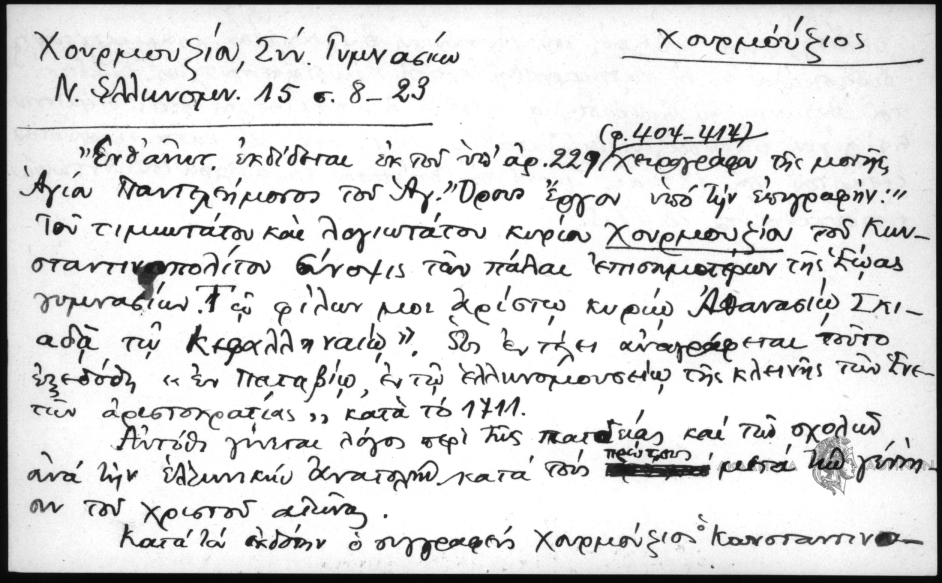 Χουρμουζίου, Σύν. Γυμνασίων
Χουρμούζιος
Ν. Ἑλληνομν. 15 σ. 8–23
(φ. 404–414)
"Ἐνθ' ἀνωτ. ἐκδίδεται ἐκ τοῦ ὑπ' ἀρ. 229 χειρογράφου τῆς μονῆς
Ἁγίου Παντελεήμονος τοῦ Ἁγ. Ὄρους ἔργον ὑπό τὴν ἐπιγραφήν:"
Τοῦ τιμιωτάτου καὶ λογιωτάτου κυρίου Χουρμουζίου τοῦ Κων-
σταντινοπολίτου Σύνοψις τῶν πάλαι ἐπισημοτέρων τῆς Ἑῴας
γυμνασίων. Τῷ φίλων μοι ἀρίστῳ κυρίῳ Ἀθανασίῳ Σκι-
αδᾷ τῷ Κεφαλληναίῳ", ὡς ἐν τέλει ἀναγράφεται τοῦτο
ἐξεδόθη «ἐν Παταβίῳ, ἐν τῷ ἑλληνομουσείῳ τῆς κλεινῆς τῶν Ἐνε-
τῶν ἀριστοκρατίας», κατὰ τὸ 1711.
Αὐτόθι γίνεται λόγος περὶ τῆς παιδείας καὶ τῶν σχολῶν
ἀνὰ τὴν ἑλληνικὴν Ἀνατολὴν κατὰ τοὺς πρώτους μετὰ τὴν γέννη-
σιν τοῦ Χριστοῦ αἰῶνας.
Κατὰ τὸν ἐκδότην ὁ συγγραφεὺς Χουρμούζιος ὁ Κωνσταντινο-